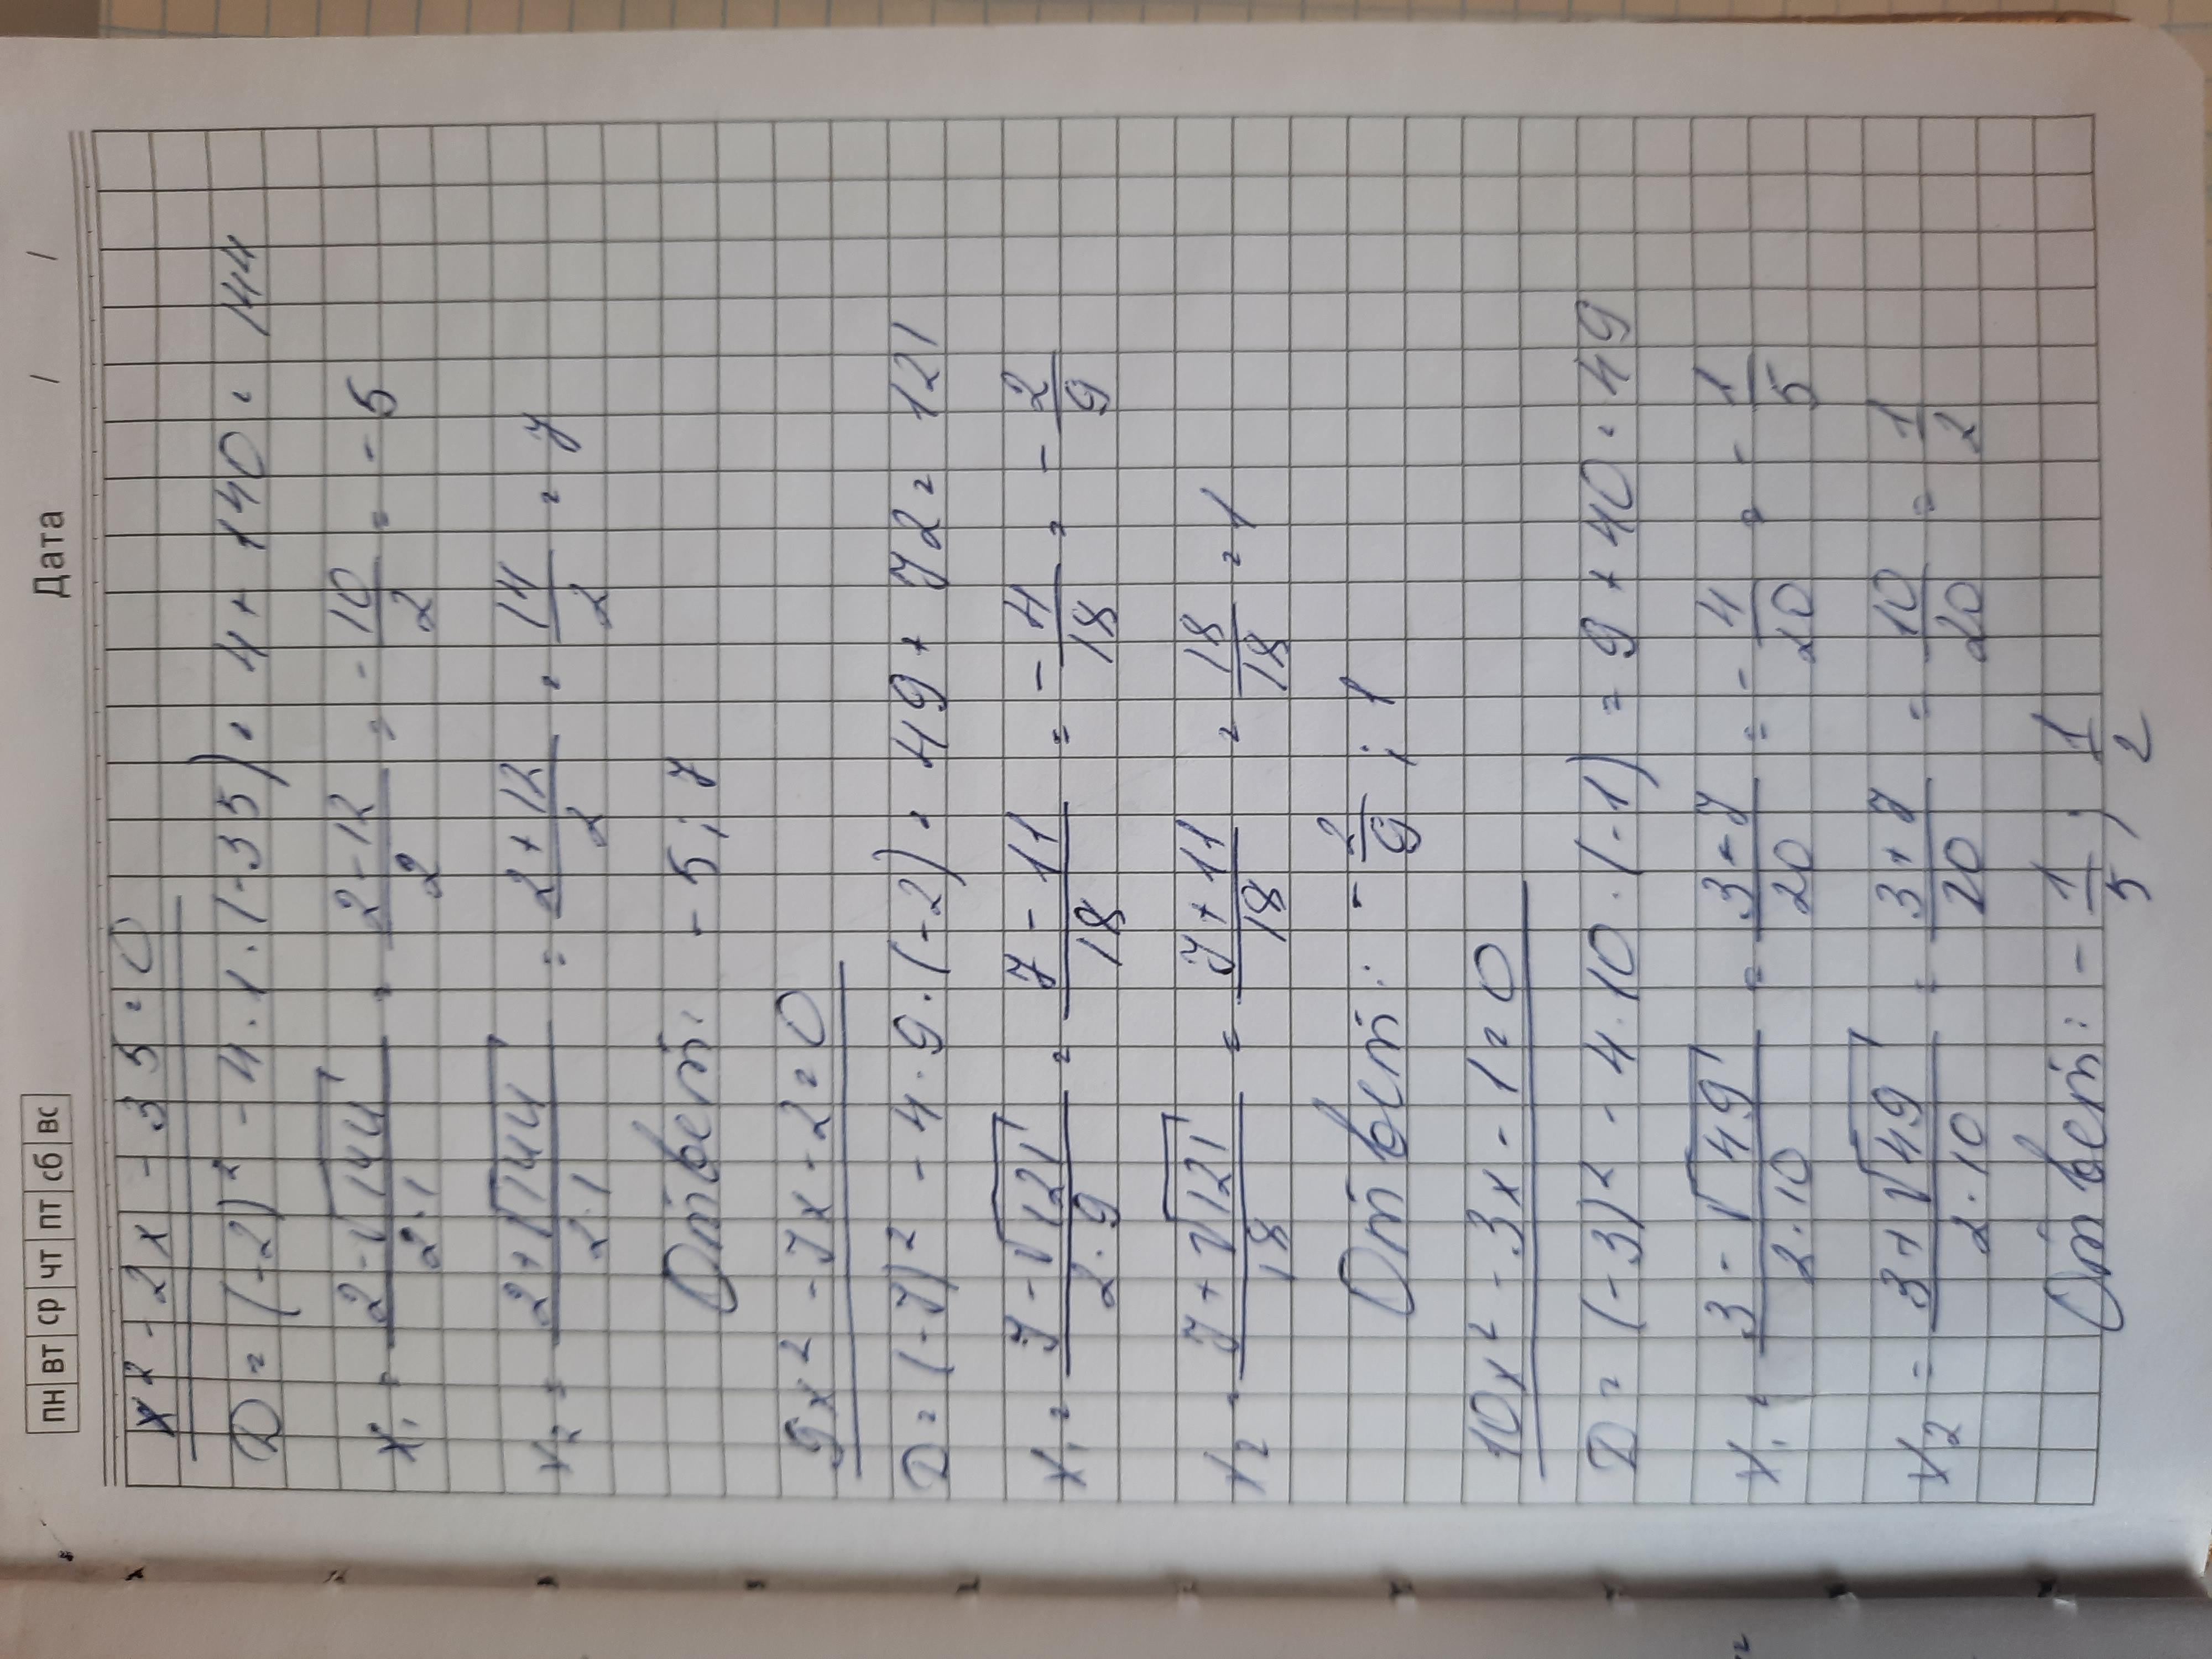 пн вт ср чт пт сб вс Дата / /
x² - 2x - 35 = 0
D = (-2)² - 4 · 1 · (-35) = 4 + 140 = 144
x₁ = (2 - √144) / (2 · 1) = (2 - 12) / 2 = - 10/2 = - 5
x₂ = (2 + √144) / (2 · 1) = (2 + 12) / 2 = 14/2 = 7
Ответ: - 5 ; 7
9x² - 7x - 2 = 0
D = (-7)² - 4 · 9 · (-2) = 49 + 72 = 121
x₁ = (7 - √121) / (2 · 9) = (7 - 11) / 18 = - 4/18 = - 2/9
x₂ = (7 + √121) / 18 = (7 + 11) / 18 = 18/18 = 1
Ответ: - 2/9 ; 1
10x² - 3x - 1 = 0
D = (-3)² - 4 · 10 · (-1) = 9 + 40 = 49
x₁ = (3 - √49) / (2 · 10) = (3 - 7) / 20 = - 4/20 = - 1/5
x₂ = (3 + √49) / (2 · 10) = (3 + 7) / 20 = 10/20 = 1/2
Ответ: - 1/5 ; 1/2